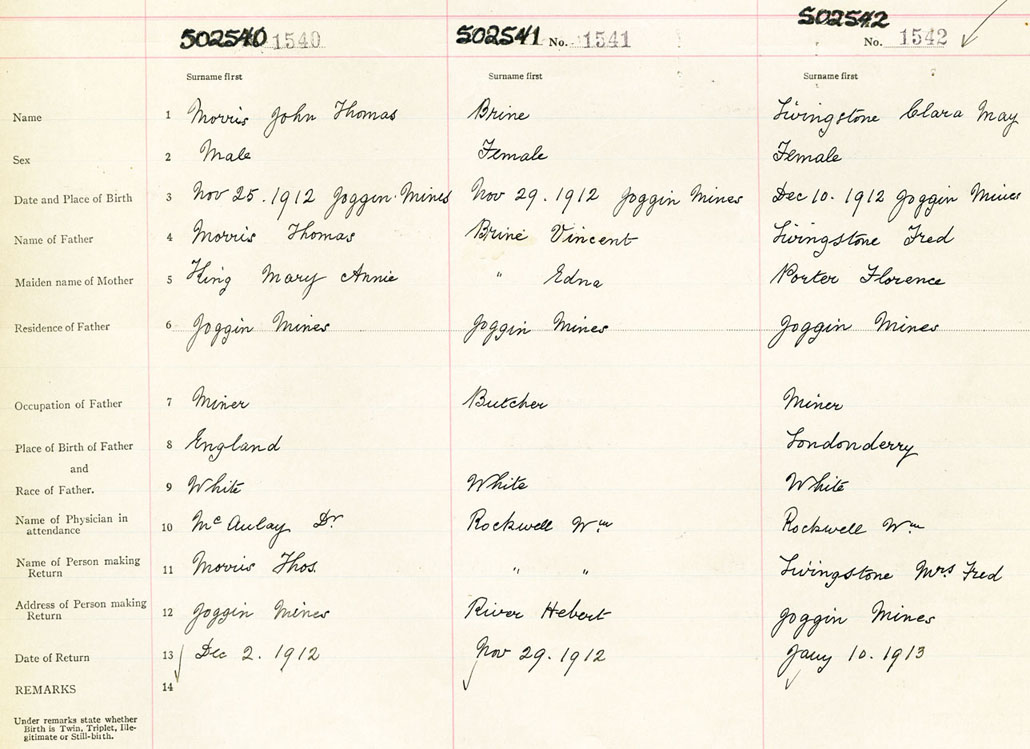 502540 1540 502541 No. 1541 502542 No. 1542
Surname first Surname first Surname first
Name 1 Morris John Thomas Brine Livingstone Clara May
Sex 2 Male Female Female
Date and Place of Birth 3 Nov 25. 1912 Joggin Mines Nov 29. 1912 Joggin Mines Dec 10. 1912 Joggin Mines
Name of Father 4 Morris Thomas Brine Vincent Livingstone Fred
Maiden name of Mother 5 King Mary Annie " Edna Porter Florence
Residence of Father 6 Joggin Mines Joggin Mines Joggin Mines
Occupation of Father 7 Miner Butcher Miner
Place of Birth of Father 8 England Londonderry
and
Race of Father. 9 White White White
Name of Physician in
attendance 10 McAulay Dr Rockwell Wm Rockwell Wm
Name of Person making
Return 11 Morris Thos. " " Livingstone Mrs Fred
Address of Person making
Return 12 Joggin Mines River Hebert Joggin Mines
Date of Return 13 Dec 2. 1912 Nov 29. 1912 Jany 10. 1913
REMARKS 14
Under remarks state whether
Birth is Twin, Triplet, Ille-
gitimate or Still-birth.